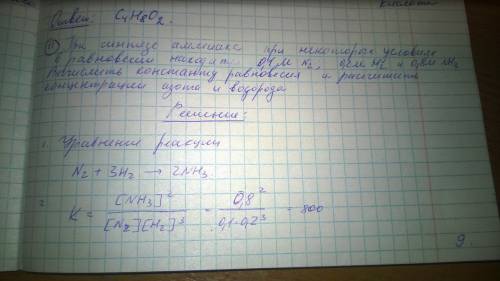 кислота
Ответ: C₄H₈O₂.
11) При синтезе аммиака при некоторых условиях
в равновесии находят. 0,1 М N₂, 0,2М H₂ и 0,8М NH₃
Вычислить константу равновесия и рассчитать
концентрации азота и водорода
Решение:
1. Уравнение реакции
N₂ + 3H₂ → 2NH₃
2. K = [NH₃]² / [N₂][H₂]³ = 0,8² / 0,1·0,2³ = 800
9.